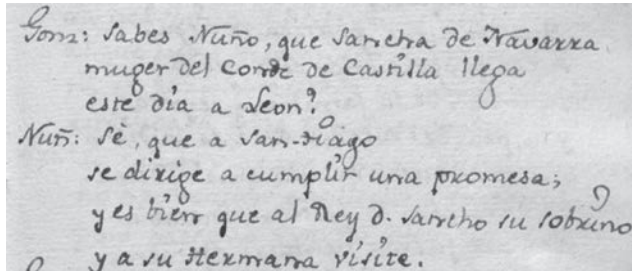 Gonz: Sabes Nuño, que Sancha de Navarra
muger del Conde de Castilla llega
este día a Leon?
Nuñ: Sè, que a San-diago
se dirige a cumplir una promesa;
y es bien que al Rey D. Sancho su sobrino
y a su Hermana visite.